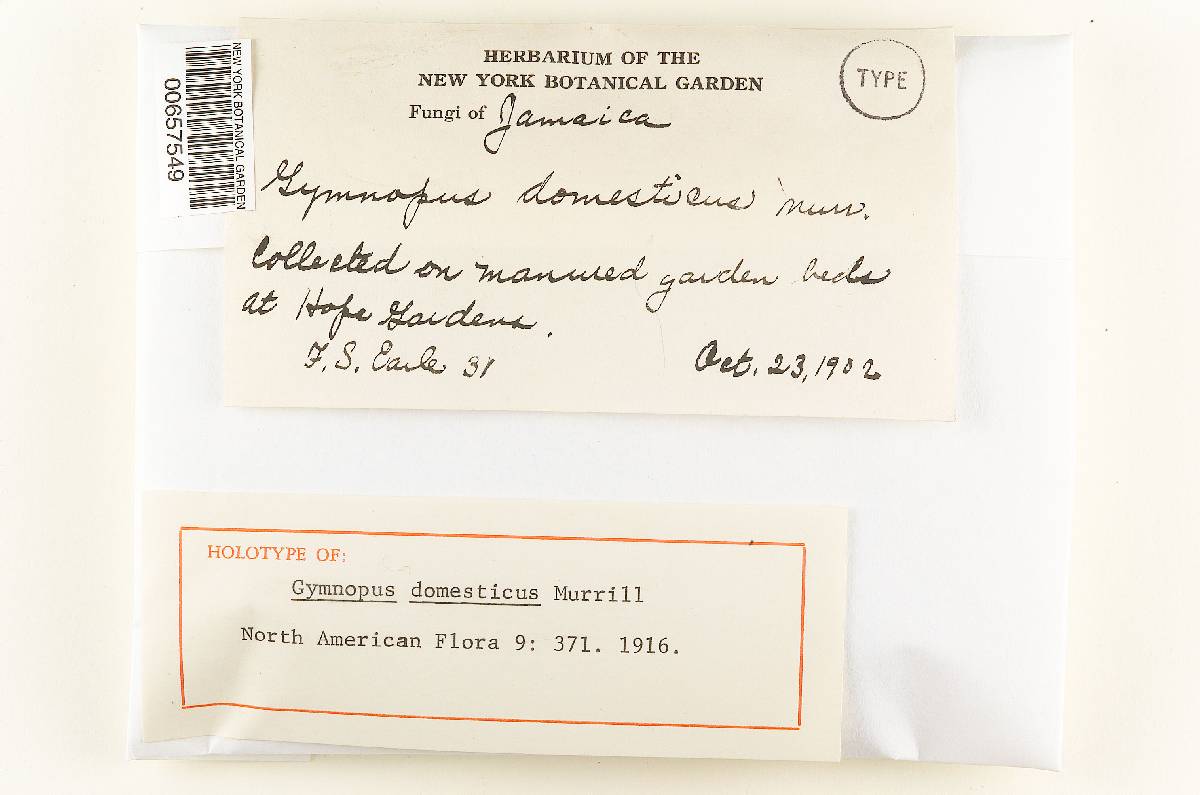 HERBARIUM OF THE
NEW YORK BOTANICAL GARDEN
Fungi of Jamaica
TYPE
NEW YORK BOTANICAL GARDEN
00657549
Gymnopus domesticus Murr.
Collected on manured garden beds
at Hope Gardens.
F. S. Earle 31
Oct. 23, 1902
HOLOTYPE OF:
Gymnopus domesticus Murrill
North American Flora 9: 371. 1916.